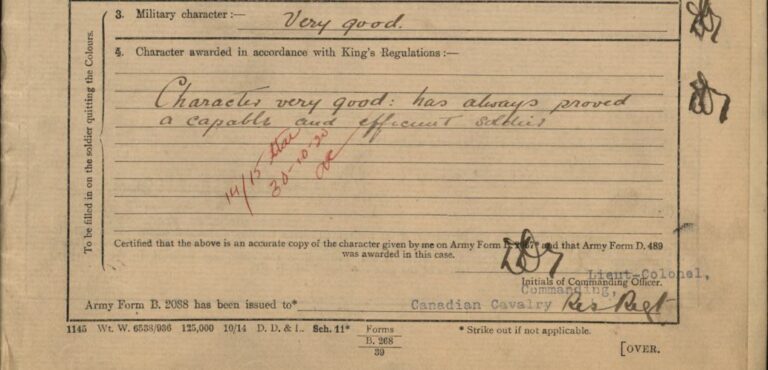 To be filled in on the soldier quitting the Colours.
3. Military character :— Very good.
4. Character awarded in accordance with King's Regulations :—
Character very good: has always proved
a capable and efficient soldier
14/15 Star
30-10-20
Certified that the above is an accurate copy of the character given by me on Army Form B. 2067* and that Army Form D. 489
was awarded in this case.
Initials of Commanding Officer.
Lieut-Colonel,
Commanding,
Army Form B. 2088 has been issued to*
Canadian Cavalry Res Regt
1145 Wt. W. 6538/936 125,000 10/14 D. D. & L. Sch. 11* Forms
B. 268
39
* Strike out if not applicable.
[OVER.